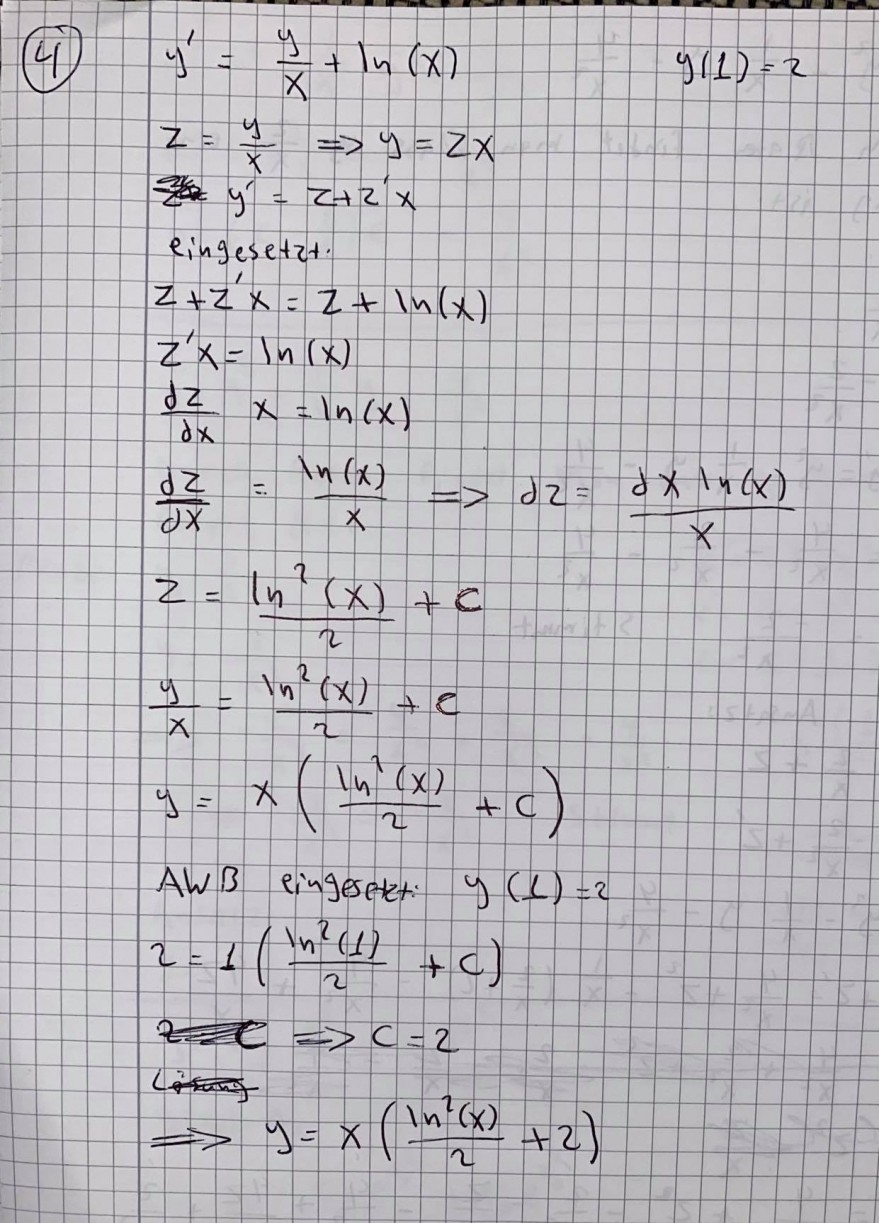 4 y' = y/x + ln(x) y(1) = 2
z = y/x => y = zx
y' = z+z'x
eingesetzt:
z+z'x = z + ln(x)
z'x = ln(x)
dz/dx x = ln(x)
dz/dx = ln(x)/x => dz = dx ln(x)/x
z = ln²(x)/2 + c
y/x = ln²(x)/2 + c
y = x (ln²(x)/2 + c)
AWB eingesetzt: y(1) = 2
2 = 1 (ln²(1)/2 + c)
=> c = 2
Lösung
=> y = x (ln²(x)/2 + 2)